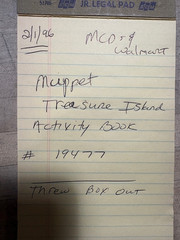 JR. LEGAL PAD
2/1/96
MCD's &
Walmart
Muppet
Treasure Island
Activity Book
# 19477
Threw Box Out